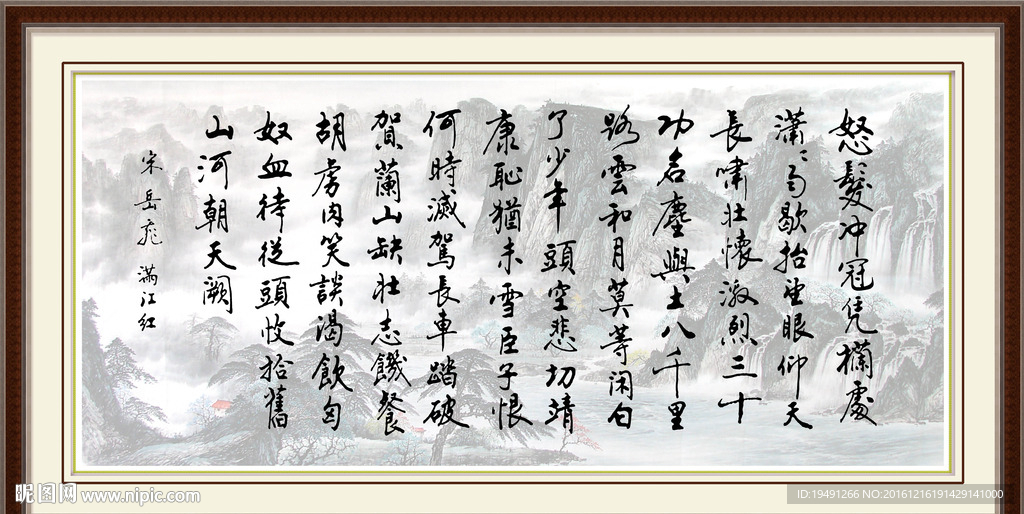 怒髮冲冠凭欄處
瀟〻雨歇抬望眼仰天
長嘯壯懷激烈三十
功名塵與土八千里
路雲和月莫等闲白
了少年頭空悲切靖
康恥猶未雪臣子恨
何時滅駕長車踏破
賀蘭山缺壯志饑餐
胡虜肉笑談渴飲匈
奴血待從頭收拾舊
山河朝天阙
宋岳飛 满江红
昵图网 www.nipic.com
ID:19491266 NO:20161216191429141000